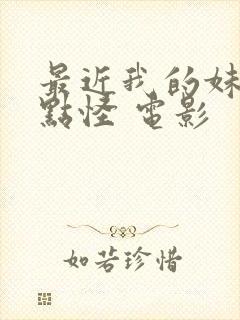 最近我的妹
點怪 電影
如若珍惜